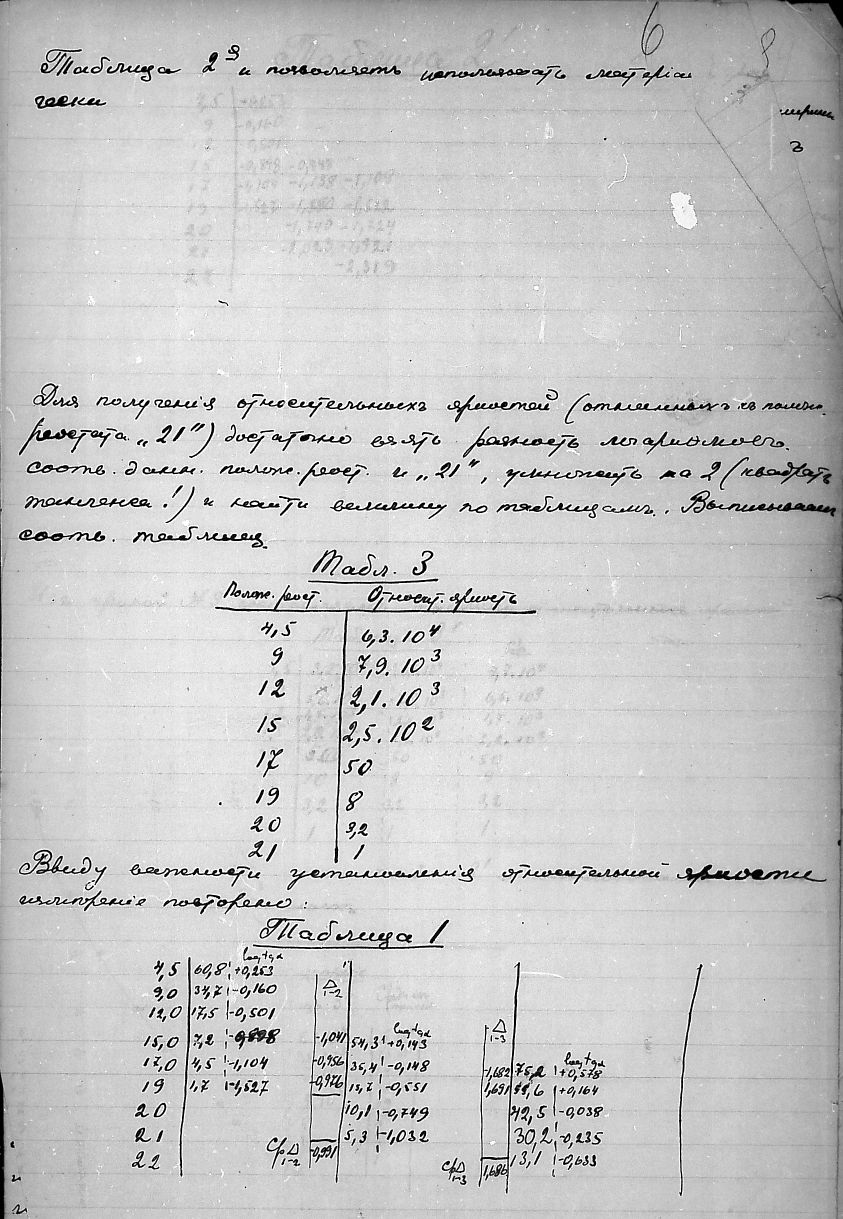 6
Таблица 2я и позволяетъ использовать матеріа
чески
ъ
Для полученія относительныхъ яркостей (отнесенныхъ къ полож.
реостата „21") достаточно взять разность логариөмовъ
соотв. данн. полож. реост. и „21", умножить на 2 (квадратъ
тангенса!) и найти величину по таблицамъ. Выписываем
соотв. таблицу.
Табл. 3
Полож. реост. Относит. яркость
4,5 6,3.10⁴
9 7,9.10³
12 2,1.10³
15 2,5.10²
17 50
19 8
20 3,2
21 1
Ввиду важности установленія относительной яркости
измѣреніе повторено:
Таблица 1
log tg α
4,5 60,8 +0,253
9,0 34,7 -0,160 Δ 1-2
12,0 17,5 -0,501
log tg α Δ 1-3
15,0 7,2 -0,898 -1,041 54,3 +0,143
log tg α
17,0 4,5 -1,104 -0,956 35,4 -0,148 -1,682 75,2 +0,578
19 1,7 -1,527 -0,976 15,7 -0,551 -1,691 +0,164
20 10,1 -0,749 42,5 -0,038
21 5,3 -1,032 30,2 -0,235
22 Ср Δ 1-2 -0,991 Ср Δ 1-3 1,686 13,1 -0,633